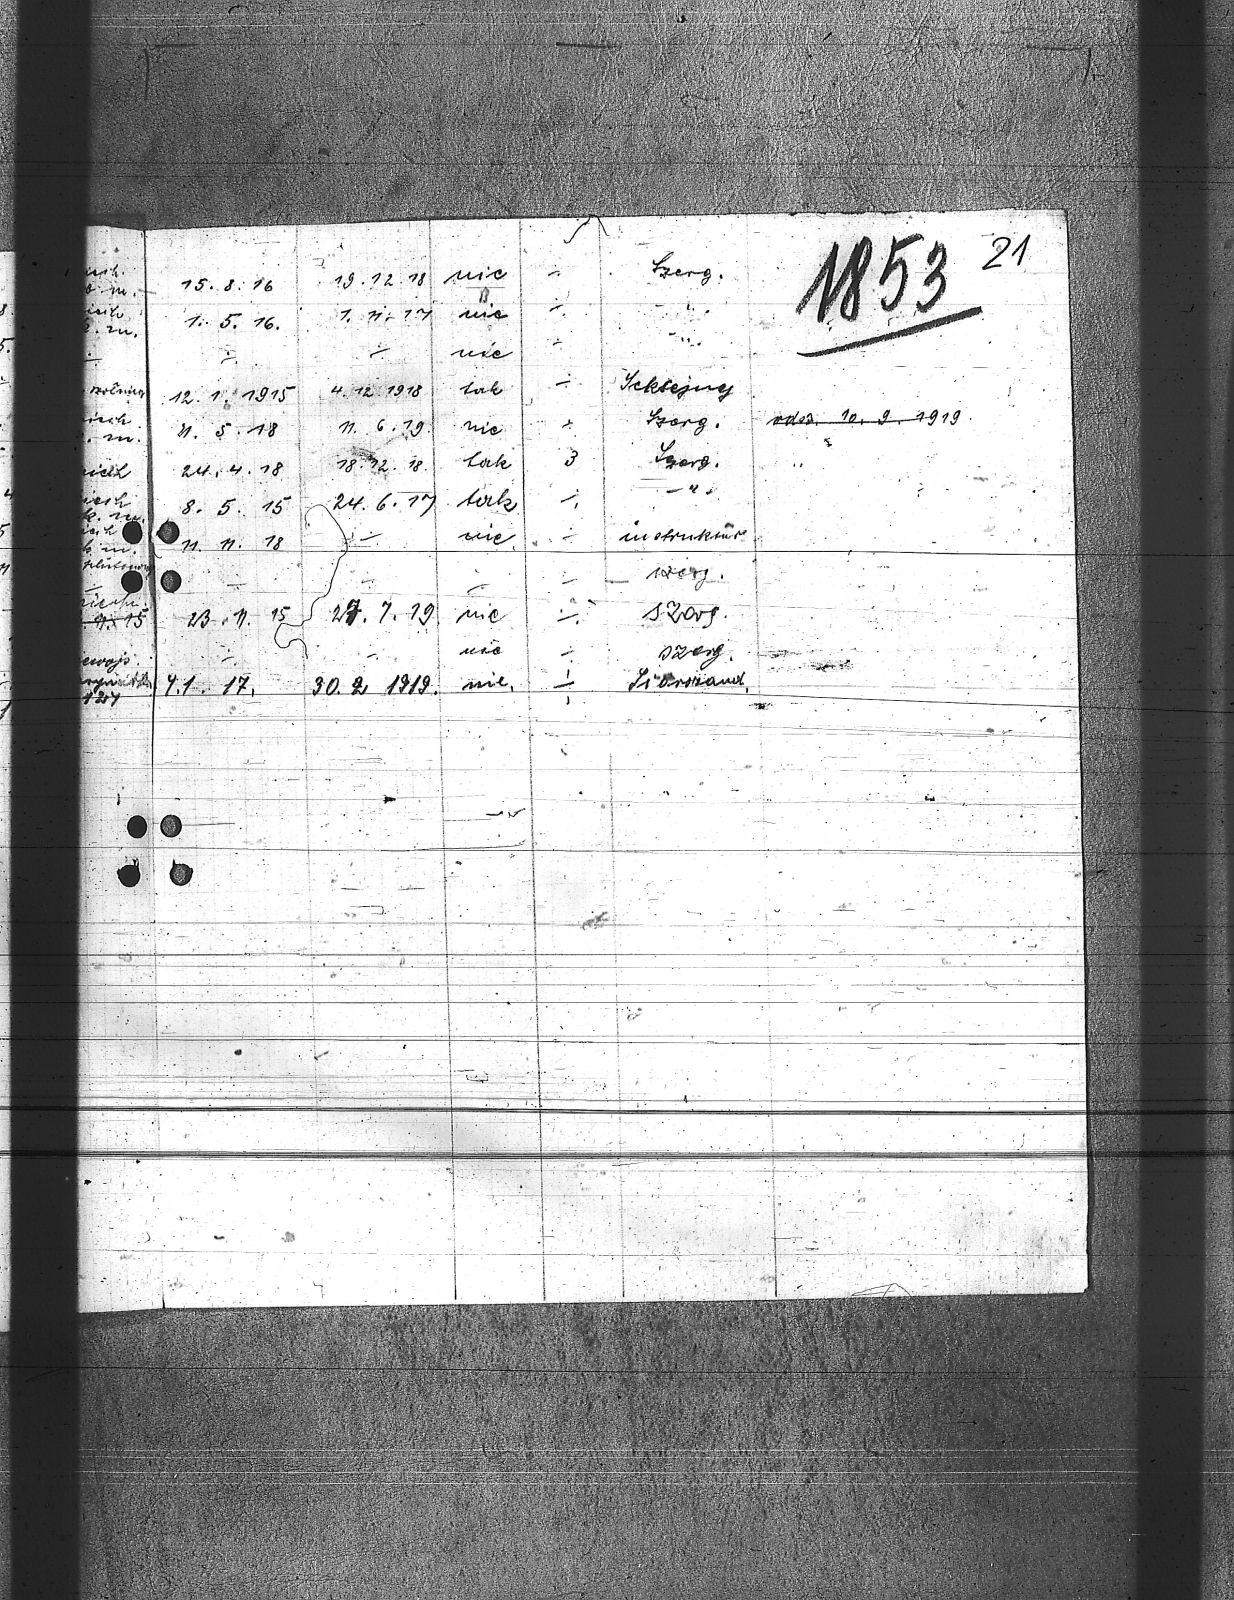 1853 21
15. 8. 16 19. 12. 18 nie ÷ Szerg.
1. 5. 16. 1. 11. 17 nie ÷ "
÷ ÷ nie ÷ "
12. 1. 1915 4. 12. 1918 tak ÷ Sekcyjny
11. 5. 18 11. 6. 19. nie ÷ Szerg. odez. 10. 9. 1919.
24. 4. 18 18. 12. 18. tak 3 Szerg. "
8. 5. 15 24. 6. 17 tak ÷ "
11. 11. 18 ÷ nie ÷ instruktór
÷ ÷ szerg.
23. 11. 15 27. 7. 19 nie ÷ szerg.
÷ ÷ nie ÷ szerg.
4. 1. 17. 30. 2 1919. nie. ÷